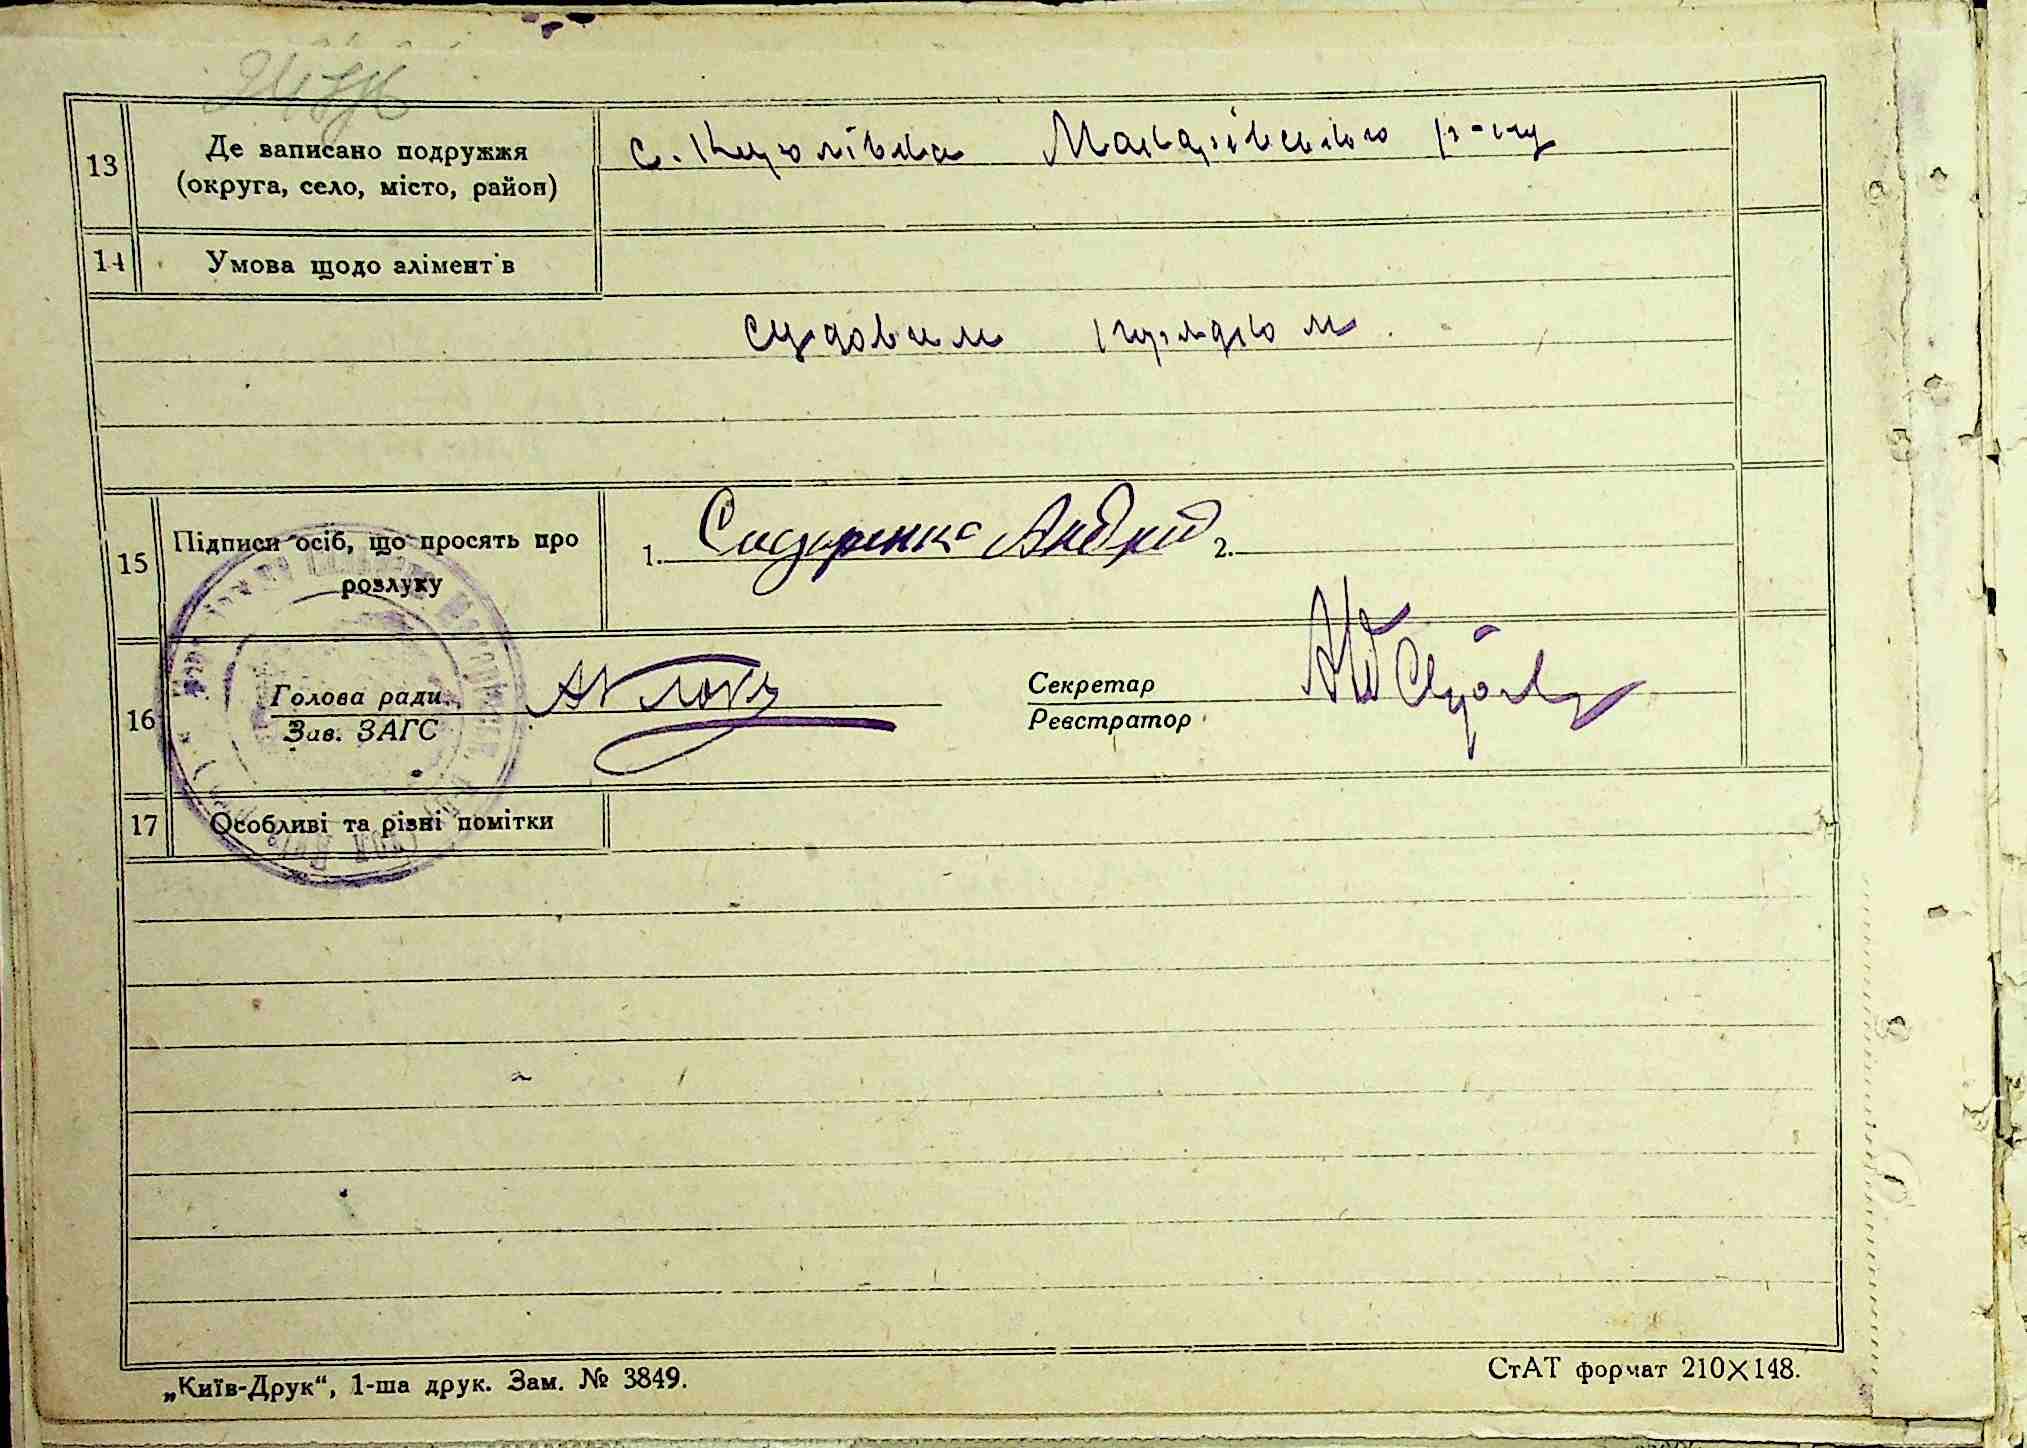 13
Де записано подружжя
(округа, село, місто, район)
с. Королівка Макарівського р-ну
14
Умова щодо алімент в
судовим порядком.
15
Підписи осіб, що просять про
розлуку
1. Сидоренко Андрій 2.
16
Голова ради
Зав. ЗАГС
Секретар
Реєстратор
17
Особливі та різні помітки
„Київ-Друк“, 1-ша друк. Зам. № 3849.
СтАТ формат 210×148.